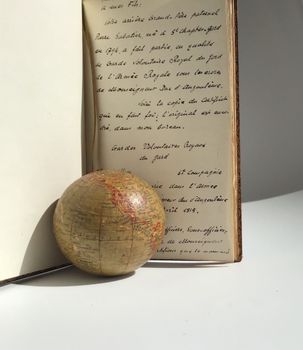 à mon Fils:
Votre arrière Grand-Père paternel
Pierre Sabatier, né à St Chapter. Gard
en 1796 a fait partie, en qualité
de Garde Volontaire Royal du Gard
de l'Armée Royale sous les ordres
de Monseigneur Duc d'Angoulême.
Voici la copie du Certificat
qui en fait foi; l'original est
dans mon bureau.
Gardes Volontaires Royaux
du Gard
6e Compagnie
dans l'Armée
d'Angoulême
avril 1815.
officiers, Sous-officiers,
de Monseigneur